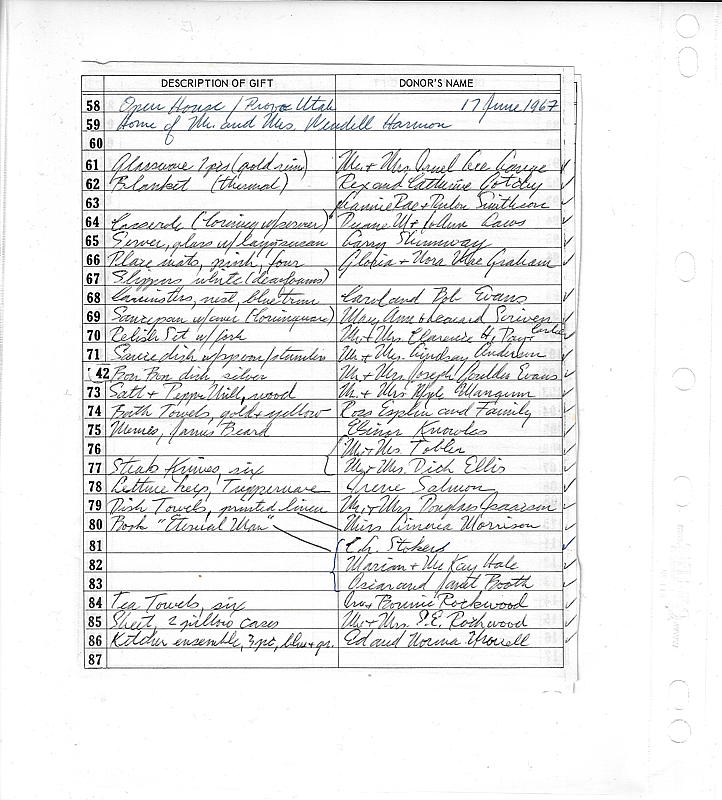 DESCRIPTION OF GIFT DONOR'S NAME
58 Open House / Provo Utah 17 June 1967
59 Home of Mr. and Mrs. Wendell Harmon
60
61 Glassware 2 pcs (gold rim) Mr. + Mrs. Lee George ✓
62 Blanket (thermal) Rex and Catherine ✓
63 Jeannie Rae + Smithson ✓
64 Casserole (Corning w/server) Duane M + JoAnn Laws ✓
65 Server, glass w/ Larry Shumway ✓
66 Place mats, pink, four Gloria + Nora Mae Graham ✓
67 Slippers white (dearfoams)
68 Cannisters, nest, blue trim Carol and Bob Evans ✓
69 Saucepan w/cover (Corningware) Mary Ann + Leonard Scriven ✓
70 Relish Set w/fork Mr. + Mrs. Clarence H. ✓
71 Sauce dish w/spoon/ Mr. + Mrs. Lindsay Anderson ✓
42 Bon Bon dish, silver Mr. + Mrs. Joseph Evans ✓
73 Salt + Pepper Mill, wood Mr. + Mrs. Mangum ✓
74 Bath Towels, gold + yellow Ross Esplin and Family ✓
75 Menus, James Beard Elinor Knowles ✓
76 Mr + Mrs. Tobler ✓
77 Steak Knives, six Mr + Mrs. Dick Ellis ✓
78 Lettuce keep, Tupperware Irene Salmon ✓
79 Dish Towels, printed linen Mr. + Mrs Douglas Isaacson ✓
80 Book "Eternal Man" Miss America Morrison ✓
81 Stokers ✓
82 Marian + McKay Hale ✓
83 Oscar and Janet Booth ✓
84 Tea Towels, six Bonnie Rockwood ✓
85 Sheet, 2 pillow cases Mr + Mrs. S.E. Rockwood ✓
86 Kitchen ensemble, 3 pc, blue + gr. Ed and Norma ✓
87